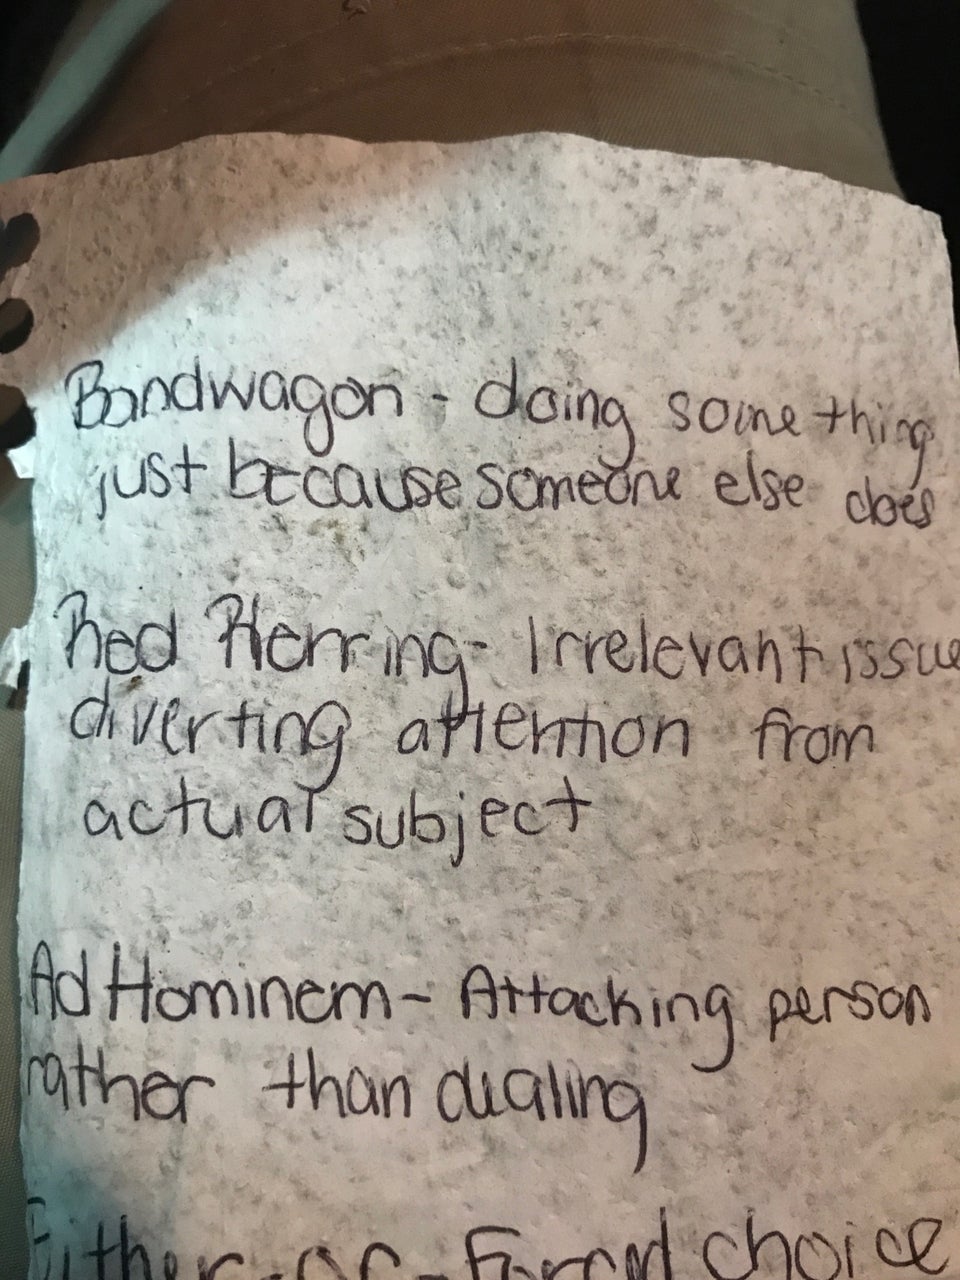 Bandwagon - doing something
just because someone else does
Red Herring - Irrelevant issue
diverting attention from
actual subject
Ad Hominem - Attacking person
rather than dualing
Either-or - Forced choice